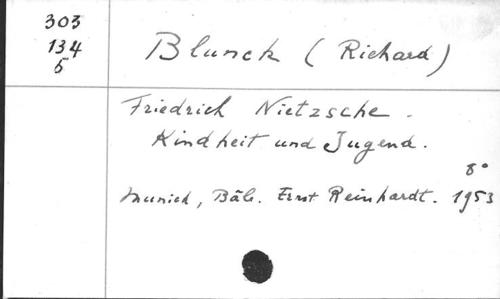 303
134
5
Blunck (Richard)
Friedrich Nietzsche.
Kindheit und Jugend.
8°
Munich, Bâle. Ernst Reinhardt. 1953